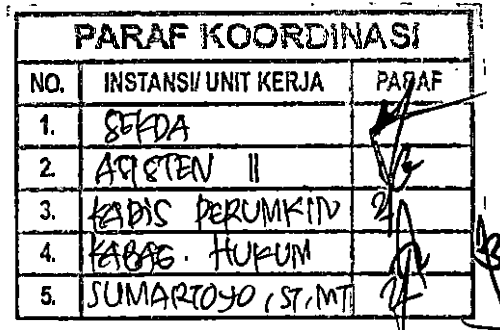 PARAF KOORDINASI
NO. INSTANSI/ UNIT KERJA PARAF
1. SEKDA
2. ASISTEN II
3. KADIS PERUMKIN
4. KABAG. HUKUM
5. SUMARTOYO, ST, MT